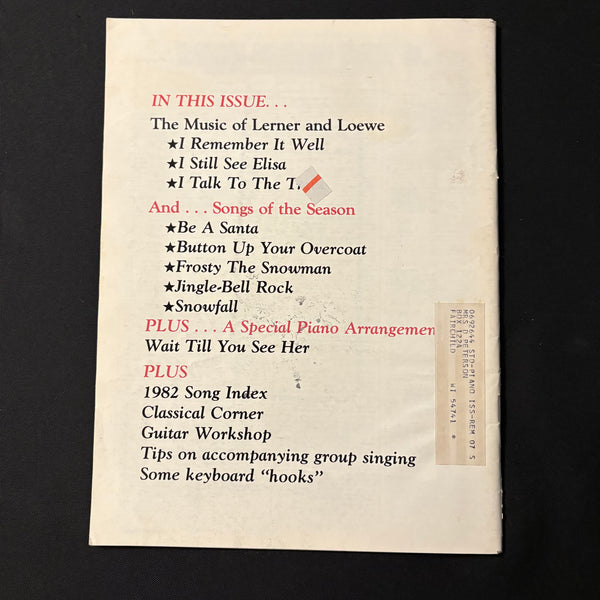 IN THIS ISSUE. . .
The Music of Lerner and Loewe
★I Remember It Well
★I Still See Elisa
★I Talk To The T
And . . . Songs of the Season
★Be A Santa
★Button Up Your Overcoat
★Frosty The Snowman
★Jingle-Bell Rock
★Snowfall
PLUS . . . A Special Piano Arrangemen
Wait Till You See Her
PLUS
1982 Song Index
Classical Corner
Guitar Workshop
Tips on accompanying group singing
Some keyboard “hooks”
0692644 STD-PIANO ISS-REM 07 S
MRS D PETERSON
BOX 122A
FAIRCHILD WI 54741 *